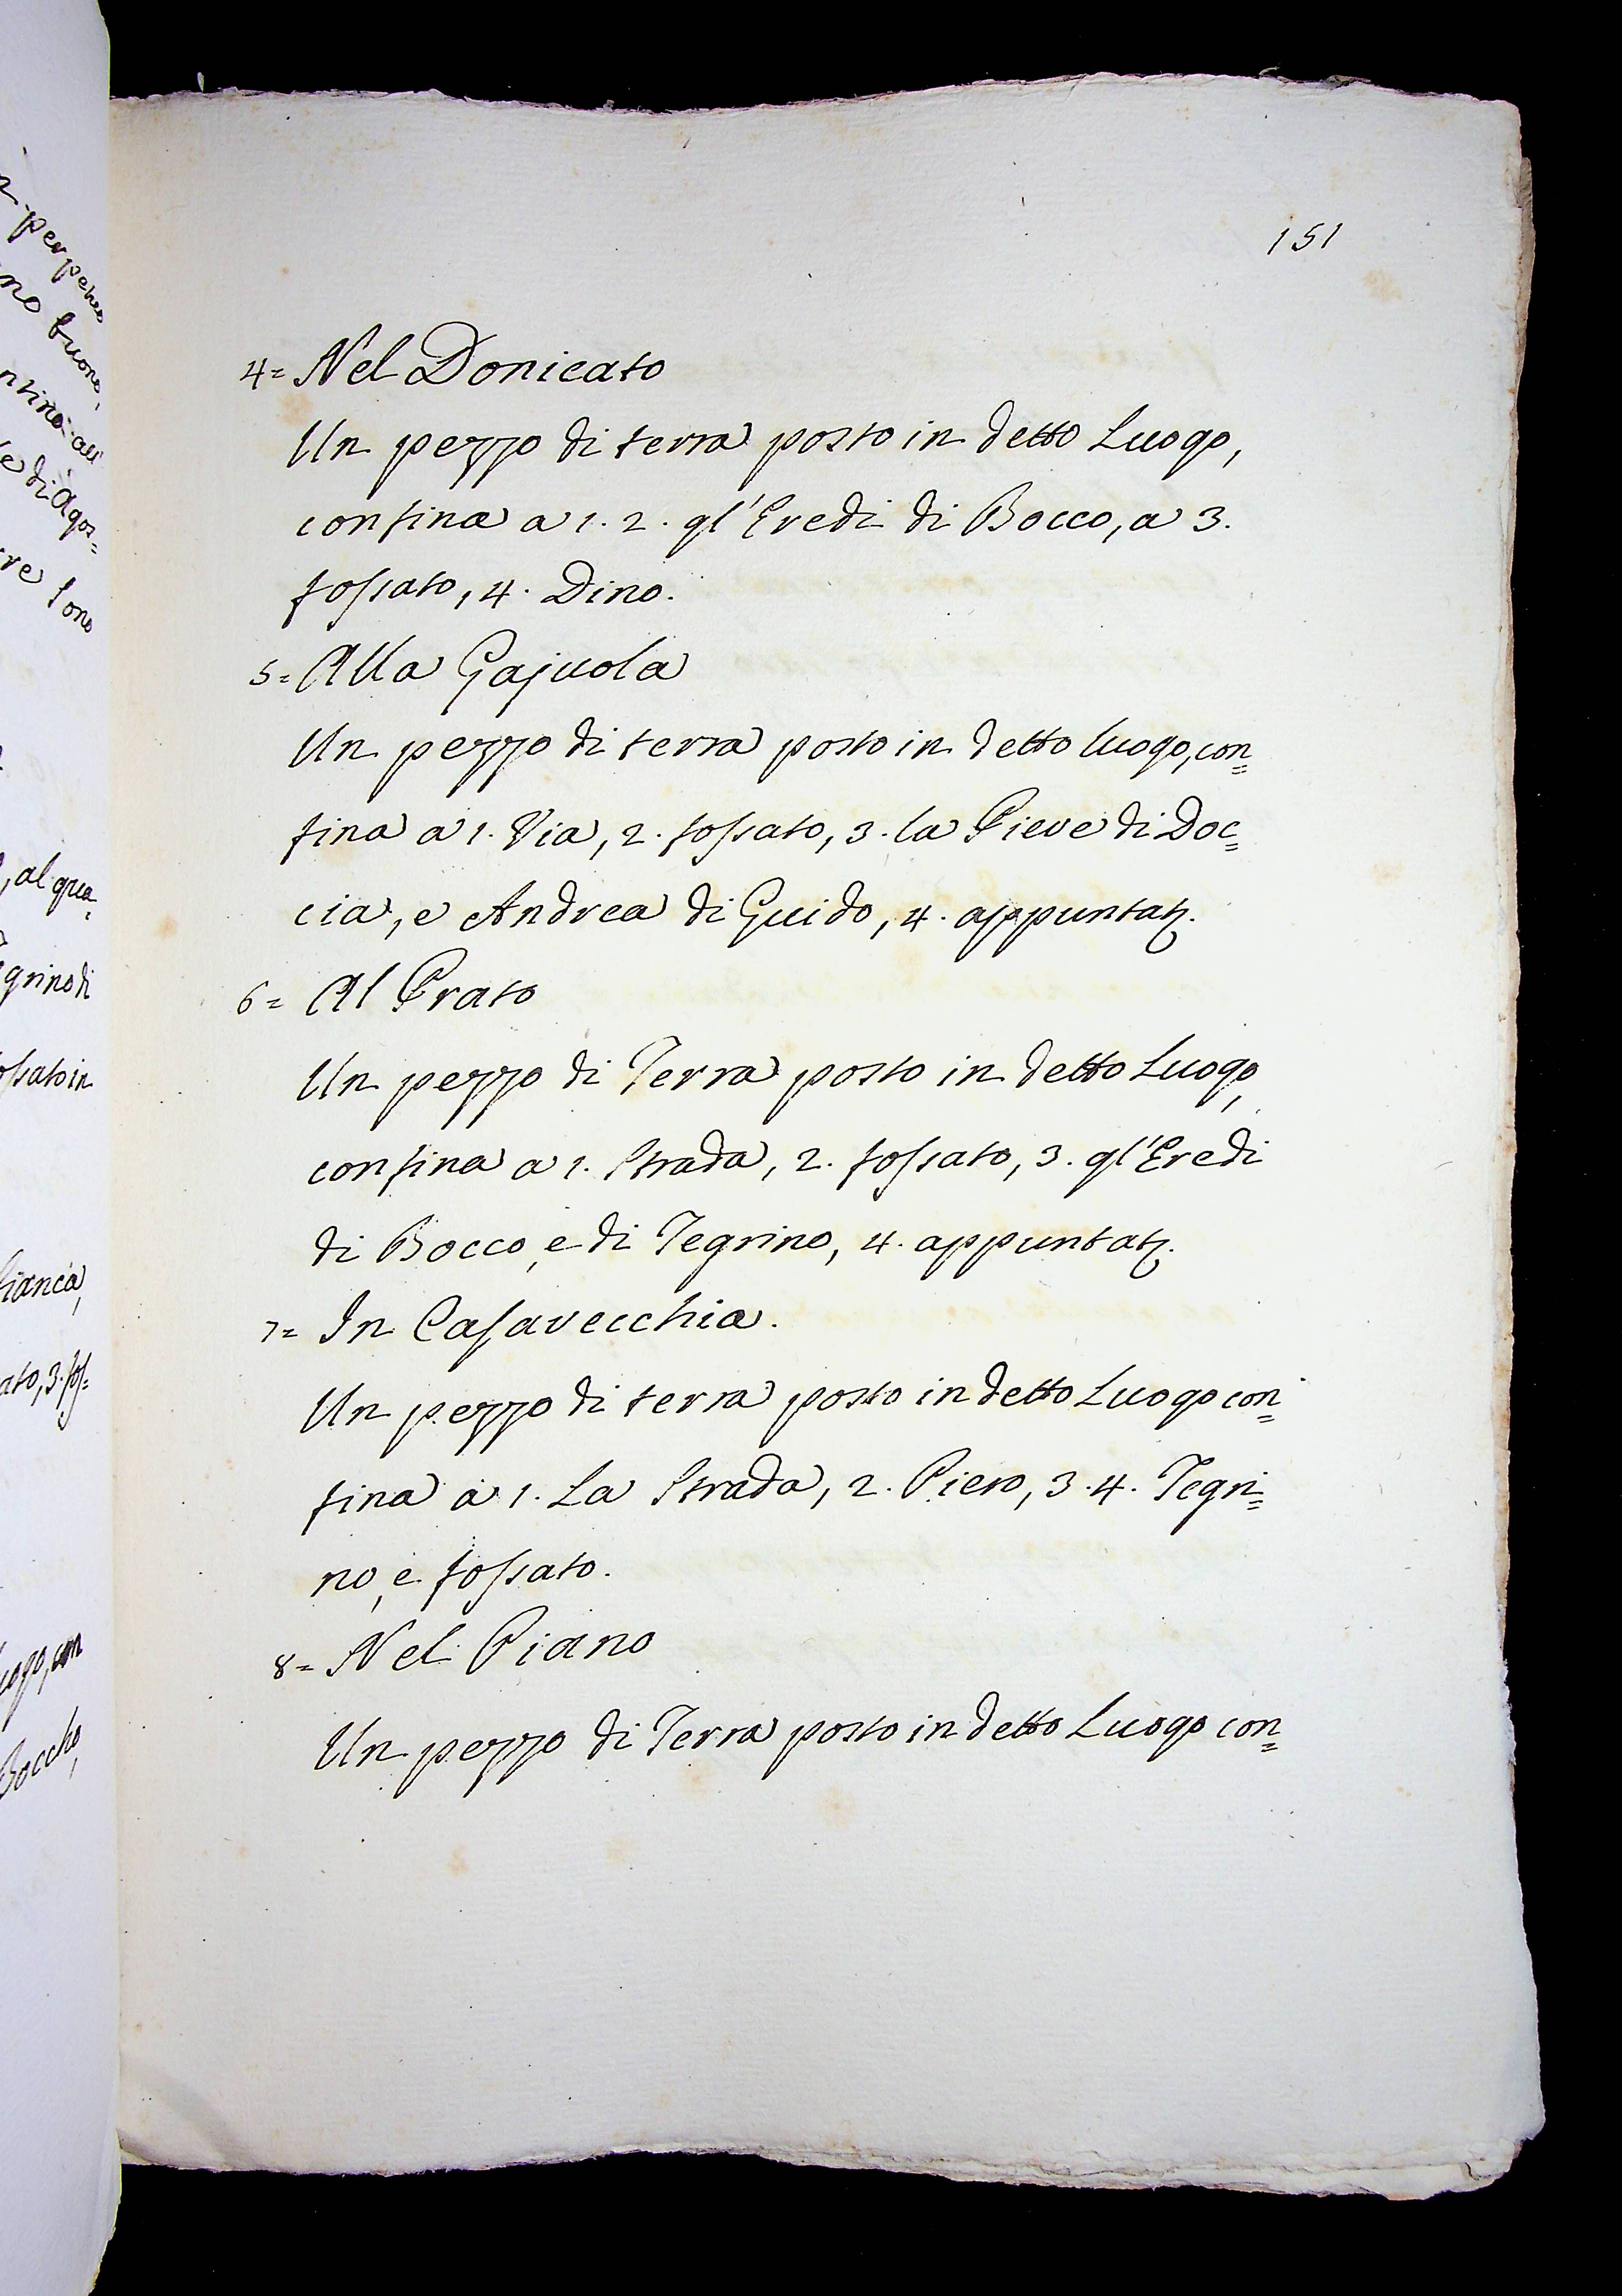 151
4= Nel Donicato
Un pezzo di terra posto in detto Luogo,
confina a 1. 2. gl'Eredi di Bocco, a 3.
fossato, 4. Dino.
5= Alla Gajuola
Un pezzo di terra posto in detto luogo, con=
fina a 1. Via, 2. fossato, 3. la Pieve di Doc=
cia, e Andrea di Guido, 4. appuntatz.
6= Al Prato
Un pezzo di Terra posto in detto Luogo,
confina a 1. Strada, 2. fossato, 3. gl'Eredi
di Bocco, e di Tegrino, 4. appuntatz.
7= In Casavecchia.
Un pezzo di terra posto in detto Luogo con=
fina a 1. La Strada, 2. Piero, 3. 4. Tegri=
no, e fossato.
8= Nel Piano
Un pezzo di Terra posto in detto Luogo con=